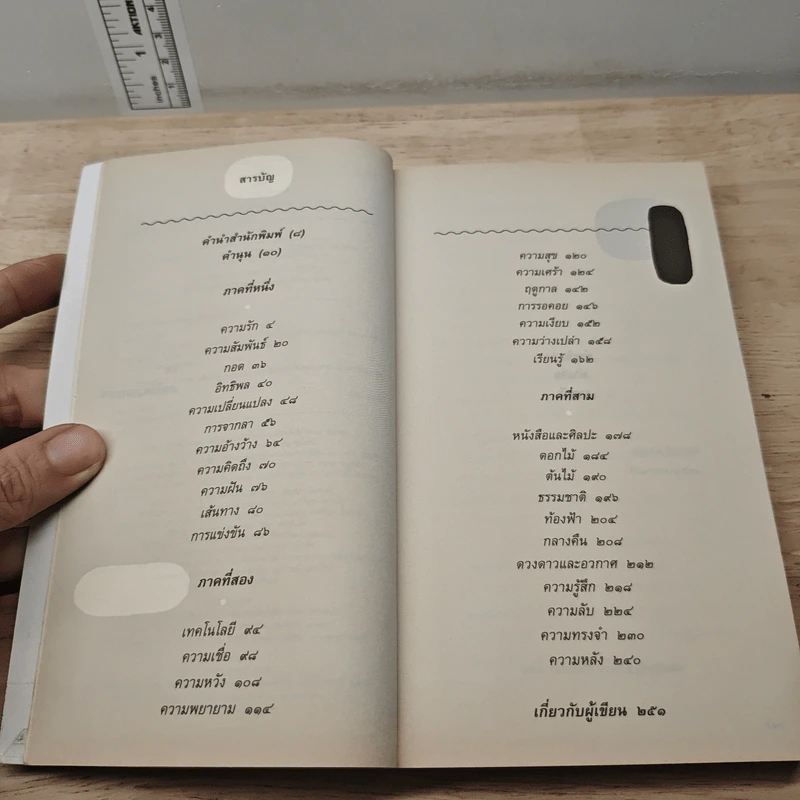 AKTION
inches
1 2 3 4
สารบัญ
คำนำสำนักพิมพ์ (๘)
คำนุน (๑๐)
ภาคที่หนึ่ง
ความรัก ๔
ความสัมพันธ์ ๒๐
กอด ๓๖
อิทธิพล ๔๐
ความเปลี่ยนแปลง ๔๘
การจากลา ๕๖
ความอ้างว้าง ๖๔
ความคิดถึง ๗๐
ความฝัน ๗๖
เส้นทาง ๘๐
การแข่งขัน ๘๖
ภาคที่สอง
เทคโนโลยี ๙๔
ความเชื่อ ๙๘
ความหวัง ๑๐๘
ความพยายาม ๑๑๔
ความสุข ๑๒๐
ความเศร้า ๑๒๔
ฤดูกาล ๑๔๒
การรอคอย ๑๔๖
ความเงียบ ๑๕๒
ความว่างเปล่า ๑๕๘
เรียนรู้ ๑๖๒
ภาคที่สาม
หนังสือและศิลปะ ๑๗๘
ดอกไม้ ๑๘๔
ต้นไม้ ๑๙๐
ธรรมชาติ ๑๙๖
ท้องฟ้า ๒๐๔
กลางคืน ๒๐๘
ดวงดาวและอวกาศ ๒๑๒
ความรู้สึก ๒๑๘
ความลับ ๒๒๔
ความทรงจำ ๒๓๐
ความหลัง ๒๔๐
เกี่ยวกับผู้เขียน ๒๕๑